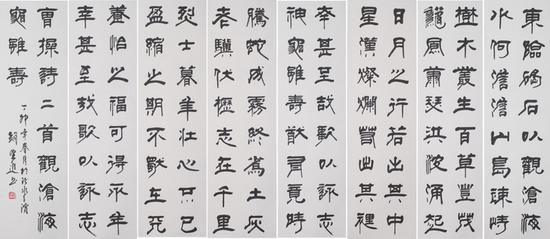 東臨碣石以觀滄海
水何澹澹山島竦峙
樹木叢生百草豐茂
龝風蕭瑟洪波涌起
日月之行若出其中
星漢燦爛若出其裡
幸甚至哉歌以詠志
神龜雖壽猶有竟時
騰蛇成霧終為土灰
老驥伏櫪志在千里
烈士暮年壯心不已
盈縮之期不獨在天
養怡之福可得永年
幸甚至哉歌以詠志
曹操詩二首觀滄海
龜雖壽
丁卯年春月於